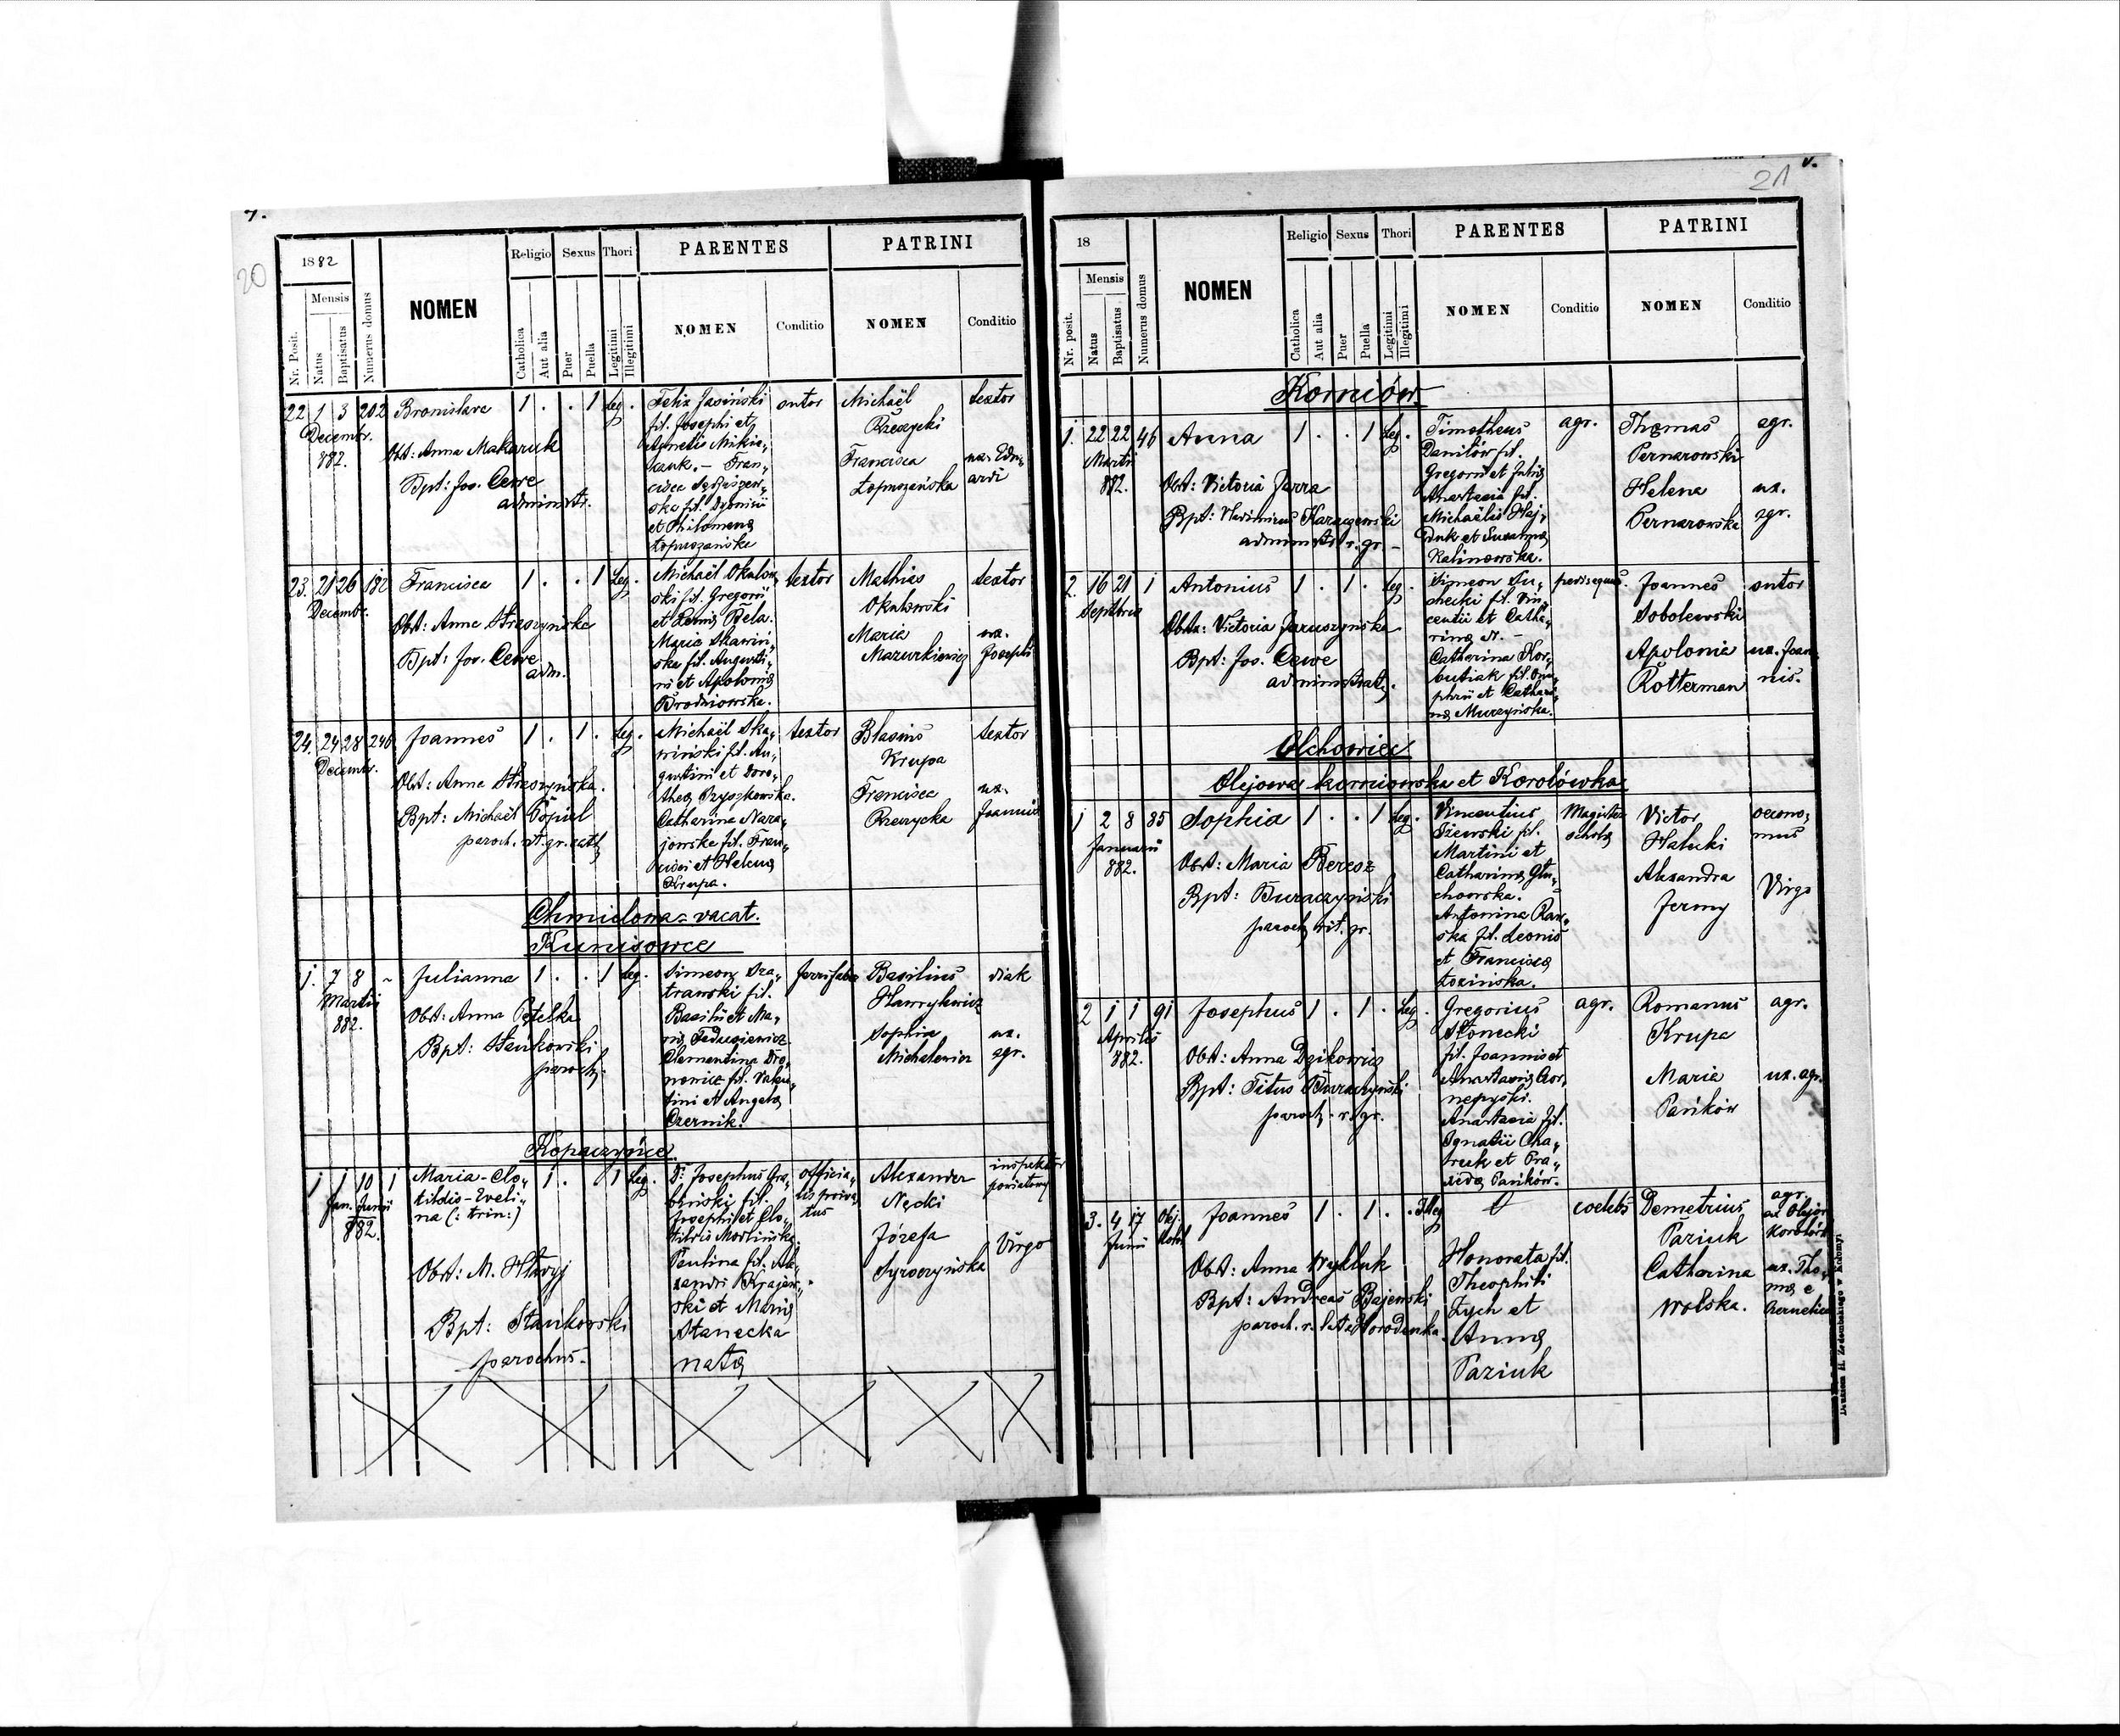 7.
20
1882
Nr. Posit.
Mensis
Natus
Baptisatus
Numerus domus
NOMEN
Religio
Catholica
Aut alia
Sexus
Puer
Puella
Thori
Legitimi
Illegitimi
PARENTES
NOMEN
Conditio
PATRINI
NOMEN
Conditio
22 1 3 202
Decembr.
882.
Bronislava
Obst: Anna Makaruk
Bpt: Jos. Cewe
administr.
1 . . 1 Leg.
Felix Jasiński
fil. Josephi et
Agnetis Mikie-
Fran-
cisca
ska fil. Dyonisii
et Philomena
Łopuszańska
sutor
Michaël
Rzeczycki
Francisca
Łopuszańska
textor
ux. Edu-
ardi
23. 21 26 182
Decembr.
Francisca
Obst: Anna Straszyńska
Bpt: Jos. Cewe
adm.
1 . . 1 Leg.
Michaël Okulow-
ski fil. Gregorii
et Bela.
Maria Skawiń-
ska fil. Augusti-
ni et Apolonia
Brodniowska.
textor
Mathias
Okulowski
Maria
Mazurkiewicz
textor
ux.
Josephi
24. 24 28 246
Decembr.
Joannes
Obst: Anna Straszyńska.
Bpt: Michaël Popiel
paroch. rit. gr. cath
1 . 1 . Leg.
Michaël Ska-
wiński fil. Au-
gustini et Doro-
thea Pryszkowska.
Catharina Nara-
jowska fil. Fran-
cisci et Helena
Krupa.
textor
Blasius
Krupa
Francisca
Rzeczycka
textor
ux.
Joannis
Chmielowa = vacat.
Kunisowce
1. 7 8 ~
Martii
882.
Julianna
Obst: Anna Petelka
Bpt: Stańkowski
paroch.
1 . . 1 Leg.
Simeon Sza-
trawski fil.
Basilii et Ma-
ria Fedusiewicz
Clementina Dro-
nowicz fil. Valen-
tini et Angela
Czernik.
Basilius
Hawrylewicz
Sophia
Michalewicz
diak
ux.
agr.
Kopaczyńce
1 1 10 1
Jan. Junii
882.
Maria-Clo-
tildis-Eveli-
na (: trin:)
Obst: M. Hlavyj
Bpt: Stańkowski
parochus.
1 . . 1 Leg.
D: Josephus Gra-
bliński fil.
Josephi et Clo-
tildis Morlińska.
Paulina fil. Ale-
xandri Krajew-
ski et Maria
Stanecka
nata
officia-
lis priva-
tus
Alexander
Nęcki
Józefa
Syroczyńska
inspektor
powiatowy
Virgo
21
18
Nr. posit.
Mensis
Natus
Baptisatus
Numerus domus
NOMEN
Religio
Catholica
Aut alia
Sexus
Puer
Puella
Thori
Legitimi
Illegitimi
PARENTES
NOMEN
Conditio
PATRINI
NOMEN
Conditio
Korniów.
1. 22 22 46
Martii
882.
Anna
Obst: Victoria Jarra
Bpt: Vladimirus Karaczewski
administr. r. gr. -
1 . . 1 Leg.
Timotheus
Danilów fil.
Gregorii et Julia
Anastasia fil.
Michaëlis Haj-
duk et Susanna
Kalinowska.
agr.
Thomas
Pernarowski
Helena
Pernarowska
agr.
ux.
agr.
2. 16 21 1
Septbris
Antonius
Obst: Victoria Jaruszyńska
Bpt: Jos. Cewe
administrat.
1 . 1 . Leg.
Simeon Su-
checki fil. Vin-
centii et Catha-
rina N. -
Catherina Kor-
butiak fil. Onu-
phrii et Cathari-
na Murzyńska.
Joannes
Sobolewski
Apolonia
Rotterman
sutor
ux. Joan-
nis.
Olchowiec
Olejowa korniowska et Korolówka
1 2 8 85
Januarii
882.
Sophia
Obst: Maria Beresz
Bpt: Buraczyński
paroch rit. gr.
1 . . 1 Leg.
Vincentius
Szewski fil.
Martini et
Catharina Glu-
chowska.
Antonina Raw-
ska fil. Leonis
et Francisca
Łozińska.
Magister
schola
Victor
Hałecki
Alexandra
Jermy
oecono-
mus
Virgo
2 1 1 91
Aprilis
882.
Josephus
Obst: Anna Dzikowicz
Bpt: Titus Buraczyński
paroch. r. gr.
1 . 1 . Leg.
Gregorius
Słonecki
fil. Joannis et
Anastasia Czor-
nepyski.
Anastasia fil.
Ignatii Cha-
brek et Pra-
xeda Pańków.
agr.
Romanus
Krupa
Maria
Pańków
agr.
ux. agr.
3. 4 17 Olej.
Junii Korol
Joannes
Obst: Anna Wykluk
Bpt: Andreas Bajewski
paroch. r. lat. Horodenka.
1 . 1 . . Illeg
0
Honorata fil.
Theophili
Zych et
Anna
Paziuk
coelebs
Demetrius
Paziuk
Catharina
Wolska.
agr.
ex Olejow
Korolówk
ux. Tho-
ma e
Czernelica